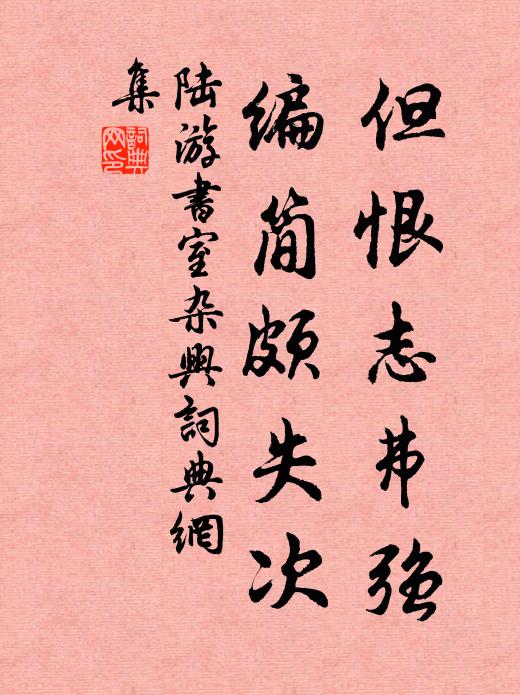 但恨志弗强
编简颇失次
陆游书室杂兴詞典網
集
詞典網印